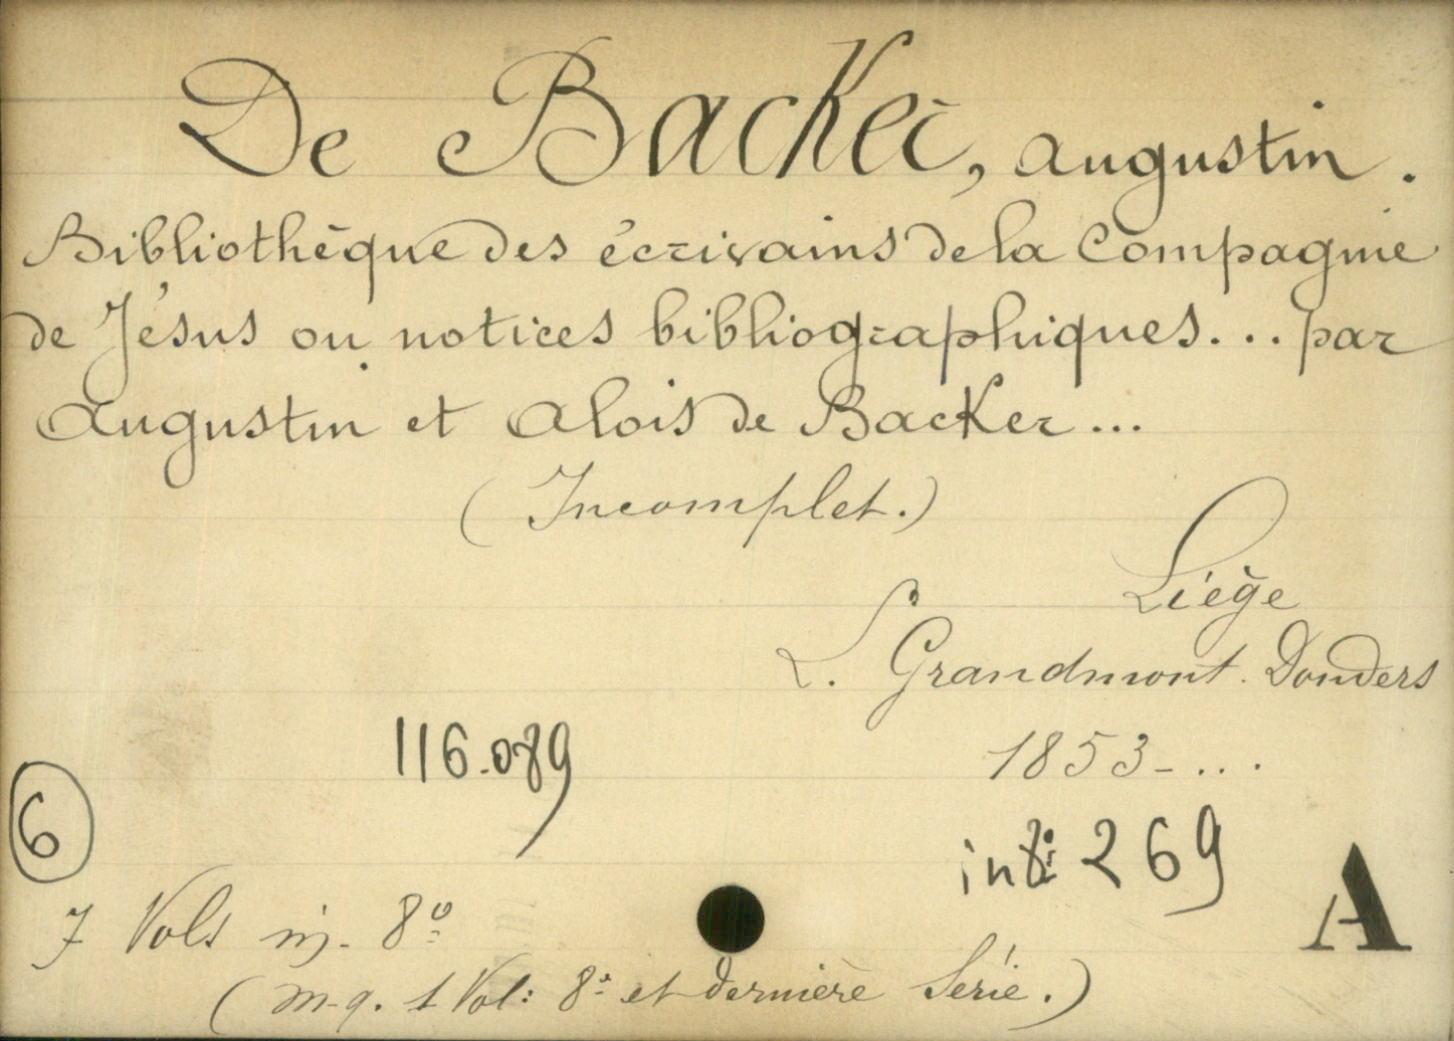 De Backer, Augustin.
Bibliothèque des écrivains de la Compagnie
de Jésus ou notices bibliographiques... par
Augustin et Alois de Backer...
(Incomplet.)
Liège
L. Grandmont. Donders
116.089
1853-...
6
in 8º 269
A
7 Vols in-8º
(mq. 1 Vol: 8º et dernière Série.)